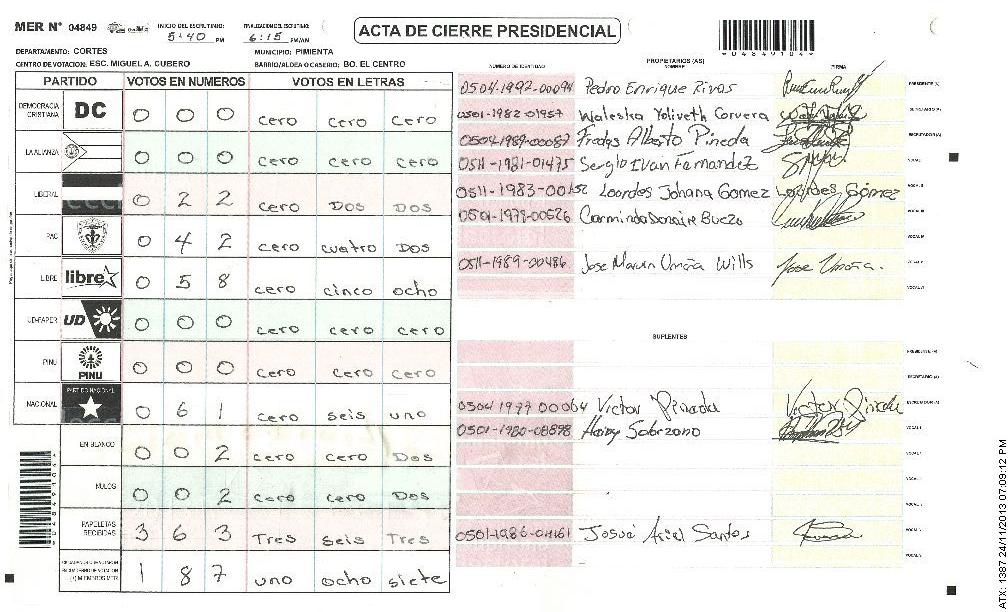 MER N° 04849
INICIO DEL ESCRUTINIO: 5:40 PM
FINALIZACION DEL ESCRUTINIO: 6:15 PM/AM
ACTA DE CIERRE PRESIDENCIAL
*04849104*
DEPARTAMENTO: CORTES
MUNICIPIO: PIMIENTA
CENTRO DE VOTACION: ESC. MIGUEL A. CUBERO
BARRIO/ALDEA O CASERIO: BO. EL CENTRO
PARTIDO VOTOS EN NUMEROS VOTOS EN LETRAS
DEMOCRACIA CRISTIANA DC 0 0 0 cero cero cero
LA ALIANZA 0 0 0 cero cero cero
LIBERAL 0 2 2 cero Dos Dos
PAC 0 4 2 cero cuatro Dos
LIBRE libre 0 5 8 cero cinco ocho
UD-FAPER UD 0 0 0 cero cero cero
PINU PINU 0 0 0 cero cero cero
NACIONAL PARTIDO NACIONAL 0 6 1 cero seis uno
EN BLANCO 0 0 2 cero cero Dos
NULOS 0 0 2 cero cero Dos
PAPELETAS RECIBIDAS 3 6 3 Tres seis Tres
1 8 7 uno ocho siete
NUMERO DE IDENTIDAD
PROPIETARIOS (AS)
NOMBRE
FIRMA
0504-1992-00094 Pedro Enrique Rivas PRESIDENTE (A)
0501-1982-01957 Waleska Yoliveth Corvera SECRETARIO (A)
0504-1989-00087 Fredys Alberto Pineda ESCRUTADOR (A)
0511-1981-01475 Sergio Ivan Fernandez VOCAL I
0511-1983-00152 Lourdes Johana Gomez Lourdes Gómez VOCAL II
0501-1979-00526 Carminda Donaire Buezo VOCAL III
VOCAL IV
0511-1989-00486 Jose Marvin Umaña Wills Jose Umaña. VOCAL V
VOCAL VI
SUPLENTES
PRESIDENTE (A)
SECRETARIO (A)
0504 1977 00064 Victor Pineda Victor Pineda ESCRUTADOR (A)
0501-1980-08898 Heidy Sabrzono VOCAL I
0501-1986-04161 Josué Ariel Santos
ATX: 1387 24/11/2013 07:09:12 PM